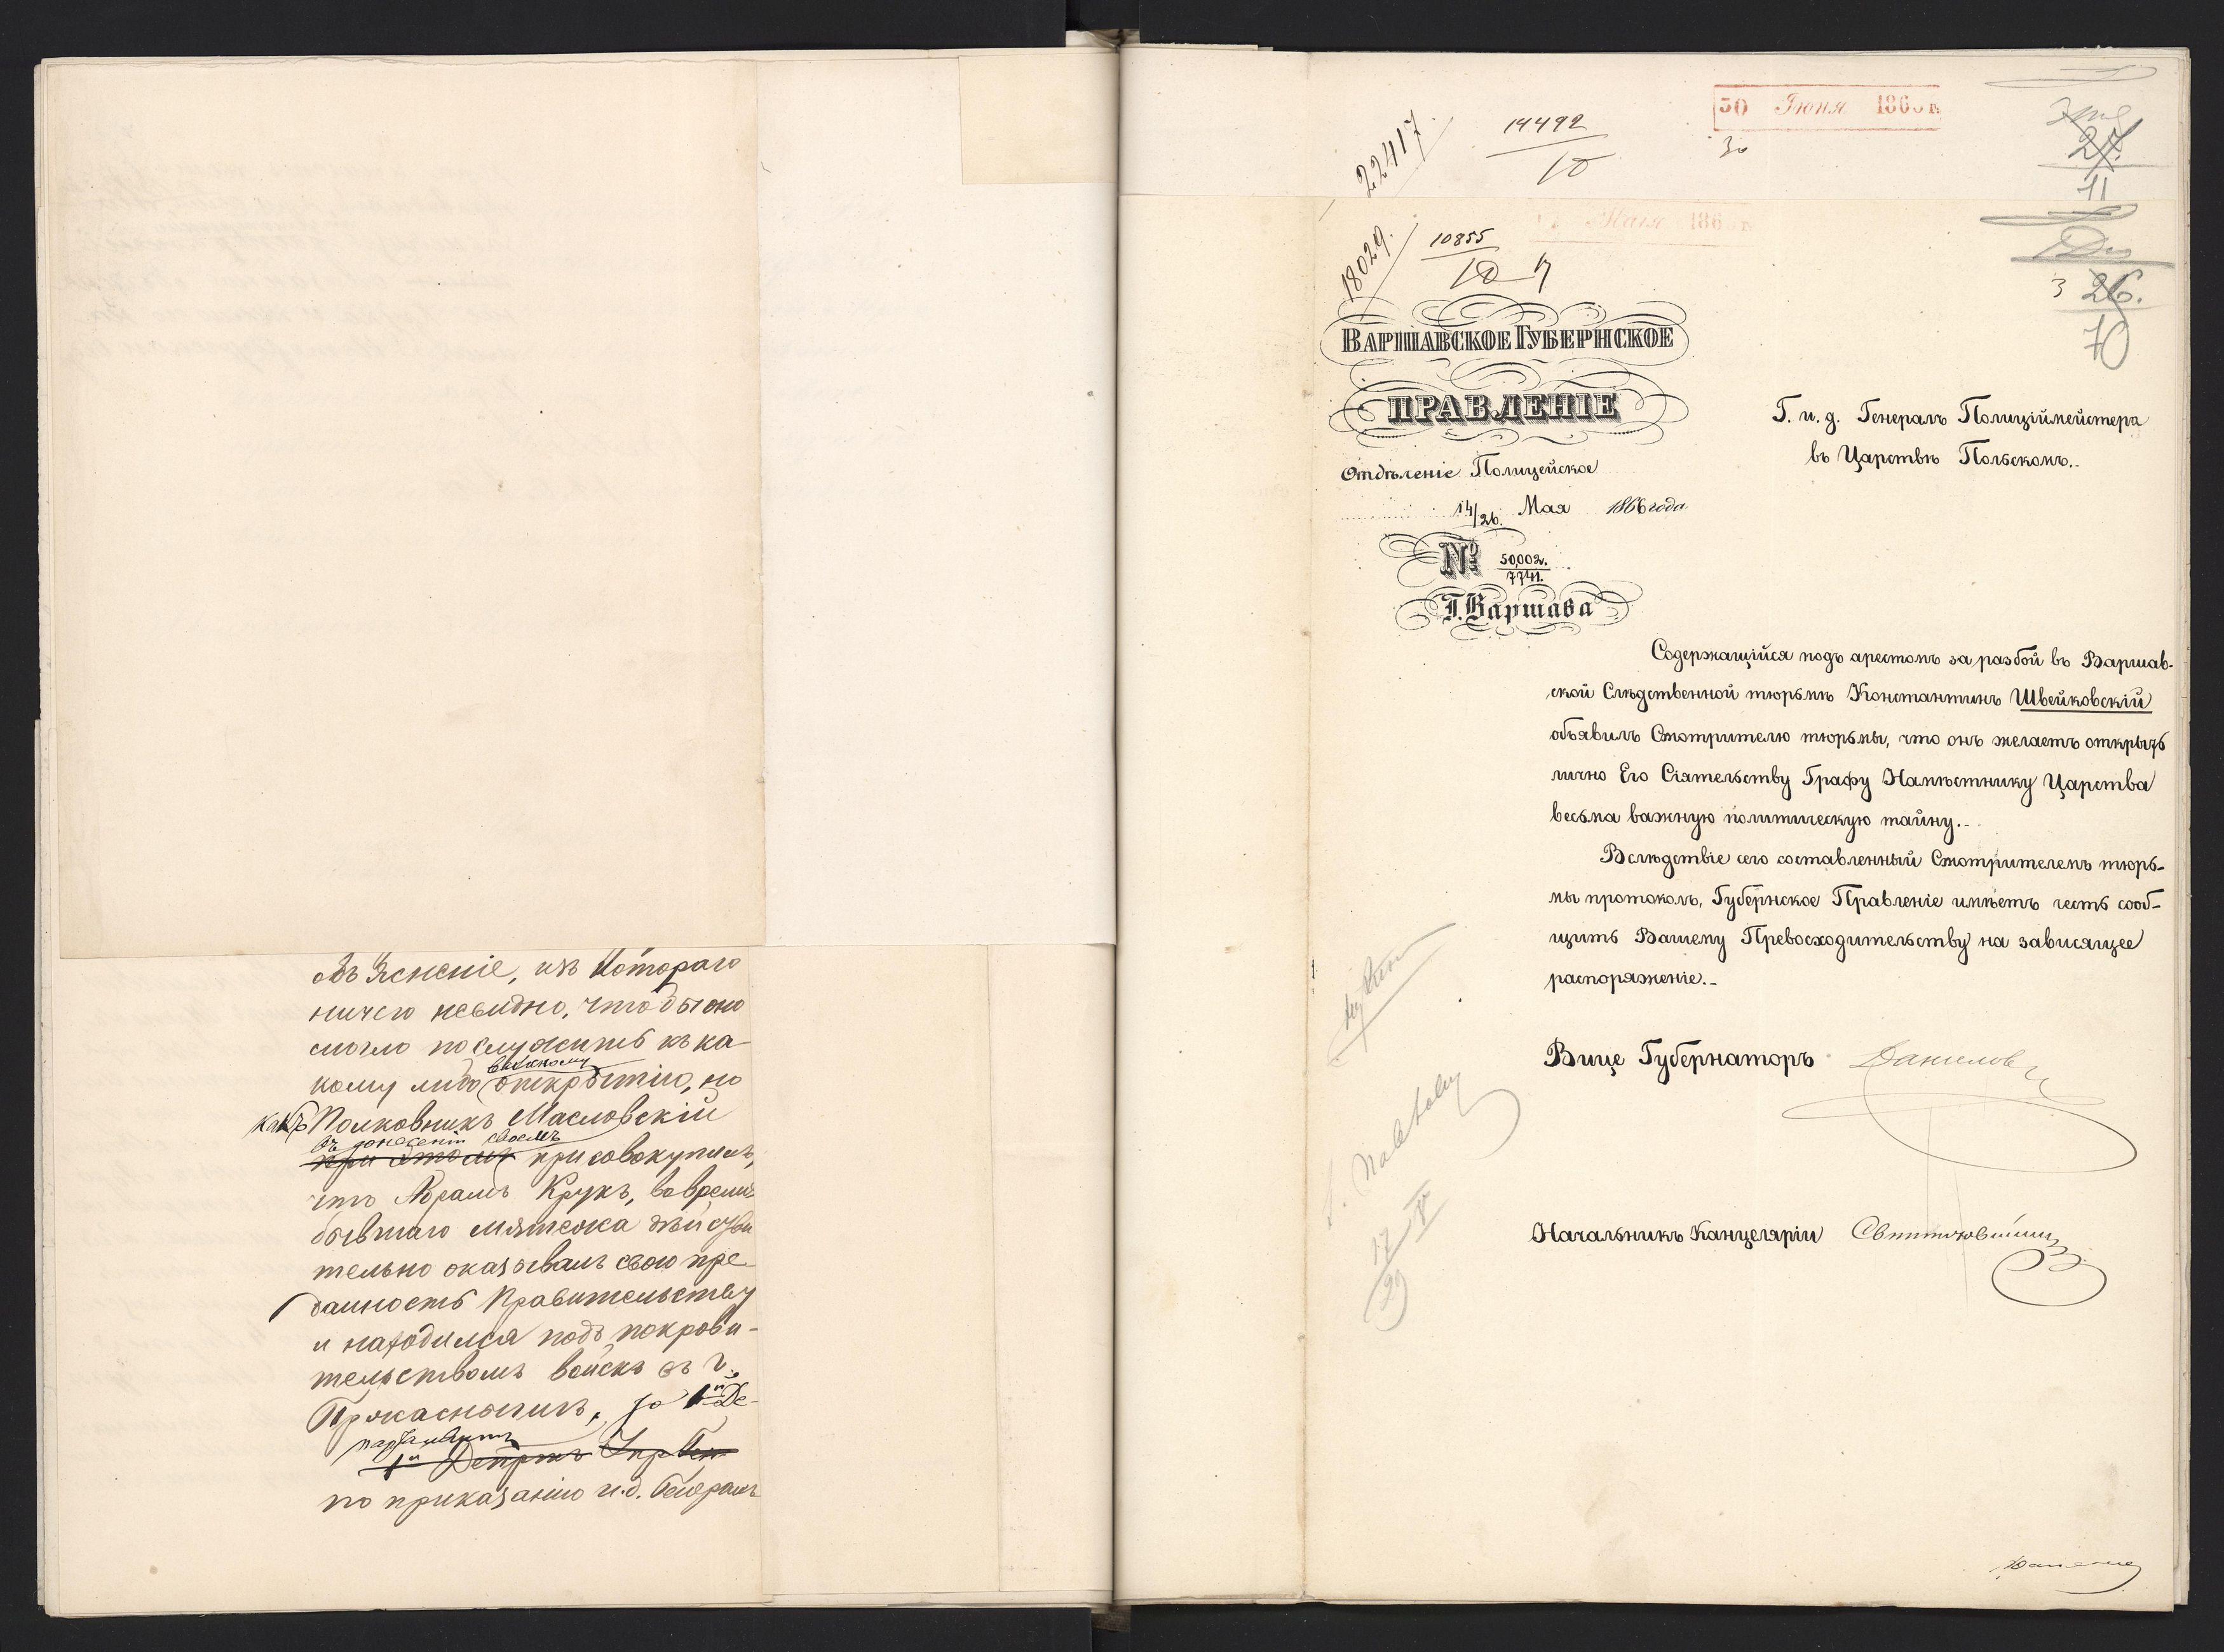 объясненіе, изъ котораго
ничего невидно, чтобы оно
могло послужить къ ка-
важному
кому либо открытію, но
какъ Полковникъ Масловскій
въ донесеніи своемъ
при этомъ присовокупилъ,
что Абрамъ Крукъ, вовремя
бывшаго мятежа действи
тельно оказывалъ свою пре-
данность Правительству
и находился подъ покрови-
тельствомъ войскъ въ г.
Прасныше, то 1й Де-
партаментъ
1й
по приказанію и.д. Генералъ
30 Іюня 186 г.
22417
14492
10
30
27.
11
Мая 186 г.
18029.
10855
10
3 26.
10
ВАРШАВСКОЕ ГУБЕРНСКОЕ
ПРАВЛЕНІЕ
Отдѣленіе Полицейское
14/26. Мая 1866 года
№ 50,002.
7741.
Г. Варшава
Г. и. д. Генералъ Полиціймейстера
въ Царствѣ Польскомъ.
Содержащійся подъ арестомъ за разбой въ Варшав-
ской Слѣдственной тюрьмѣ Константинъ Швейковскій
объявилъ Смотрителю тюрьмы, что онъ желаетъ открыть
лично Его Сіятельству Графу Намѣстнику Царства
весьма важную политическую тайну.
Вслѣдствіе сего составленный Смотрителемъ тюрь-
мы протоколъ, Губернское Правленіе имѣетъ честь сооб-
щить Вашему Превосходительству на зависящее
распоряженіе.
Вице Губернаторъ Данилов
Начальникъ Канцеляріи
17 V
29